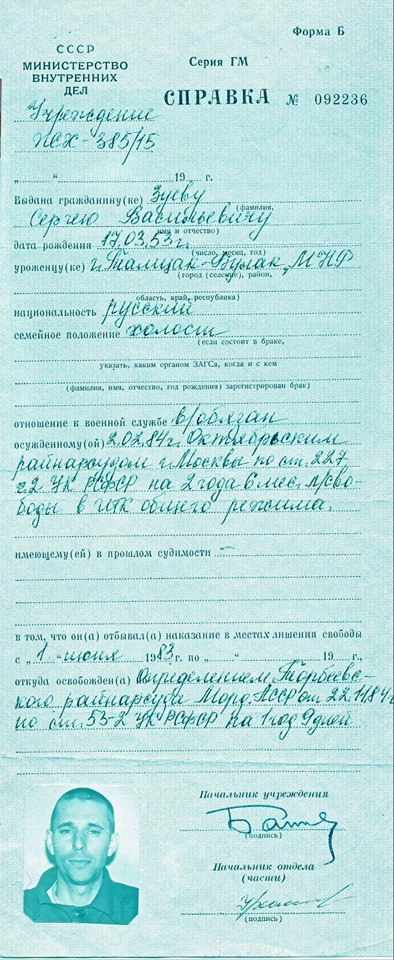 Форма Б
СССР
МИНИСТЕРСТВО
ВНУТРЕННИХ
ДЕЛ
Серия ГМ
СПРАВКА № 092236
Учреждение
ЖХ-385/15
„ “ 19 г.
Выдана гражданину(ке) Зуеву
(фамилия,
Сергею Васильевичу
имя и отчество)
дата рождения 17.03.53г.
(число, месяц, год)
уроженцу(ке) г. Талицак-Булак, МНР
(город (селение), район,
область, край, республика)
национальность русский
семейное положение холост
(если состоит в браке,
указать, каким органом ЗАГСа, когда и с кем
(фамилия, имя, отчество, год рождения) зарегистрирован брак)
отношение к военной службе в/обязан
осужденному(ой) 2.02.84г. Октябрьским
райнарсудом г. Москвы по ст. 227
ч.2 УК РСФСР на 2 года 6 мес. л/сво-
боды в ИТК общего режима.
имеющему(ей) в прошлом судимости –
в том, что он(а) отбывал(а) наказание в местах лишения свободы
с „ 1 “ июня 1983 г. по „ “ 19 г.
откуда освобожден(а) Определением Торбеевс-
кого райнарсуда Морд. АССР от 22.11.84г
по ст. 53-2 УК РСФСР на 1 год 9 дней
Начальник учреждения
(подпись)
Начальник отдела
(части)
(подпись)